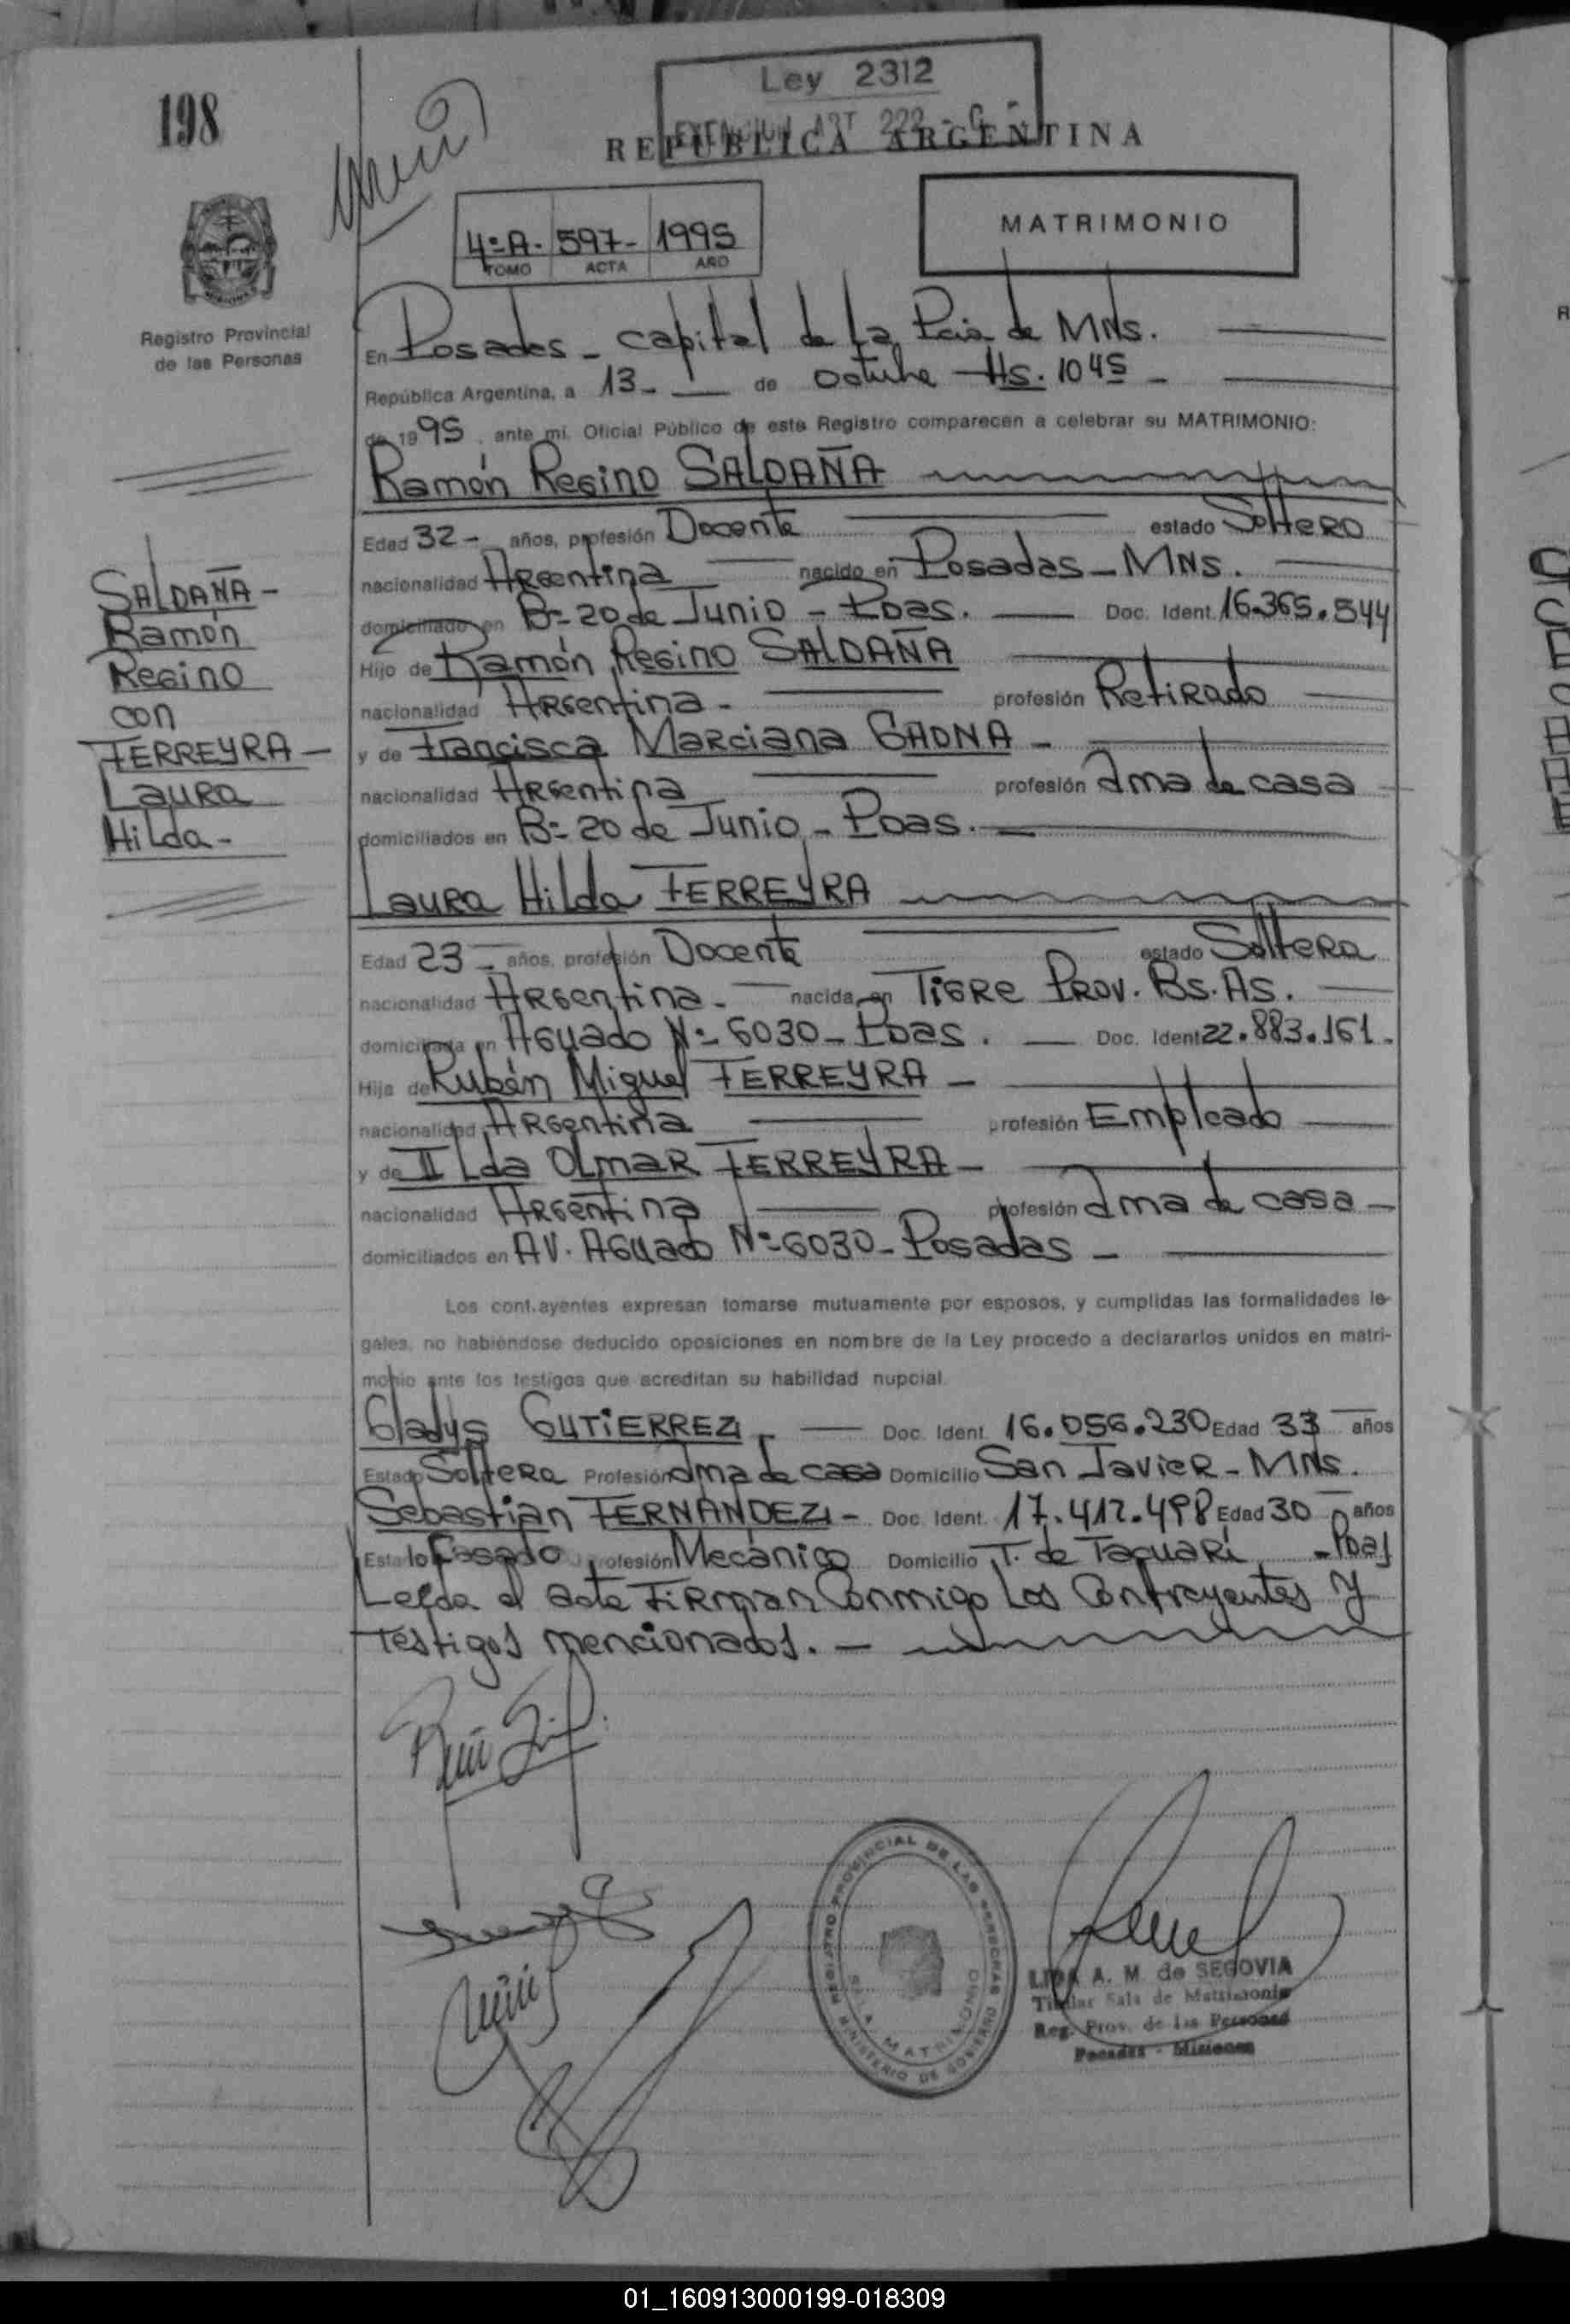 198
Ley 2312
REPUBLICA ARGENTINA
4º A. 597- 1995
TOMO ACTA AÑO
MATRIMONIO
Registro Provincial
de las Personas
En Posadas - capital de la Pcia de MNS.
República Argentina, a 13 - de Octubre Hs. 1045 -
de 1995, ante mí, Oficial Público de este Registro comparecen a celebrar su MATRIMONIO:
Ramón Regino SALDAÑA
Edad 32 - años, profesión Docente estado Soltero
nacionalidad Argentina nacido en Posadas - MNS.
domiciliado en Bº 20 de Junio - Pdas. Doc. Ident. 16.365.544
Hijo de Ramón Regino SALDAÑA
nacionalidad Argentina - profesión Retirado
y de Francisca Marciana GAONA -
nacionalidad Argentina profesión Ama de casa
domiciliados en Bº 20 de Junio - Pdas. -
SALDAÑA -
Ramón
Regino
con
FERREYRA -
Laura
Hilda -
Laura Hilda FERREYRA
Edad 23 - años, profesión Docente estado Soltera
nacionalidad Argentina - nacida en Tigre Prov. Bs. As.
domiciliada en Aguado Nº 6030 - Pdas. Doc. Ident. 22.883.161.
Hija de Rubén Miguel FERREYRA -
nacionalidad Argentina profesión Empleado
y de Ilda Olmar FERREYRA -
nacionalidad Argentina profesión Ama de casa -
domiciliados en AV. Aguado Nº 6030 - Posadas -
Los contrayentes expresan tomarse mutuamente por esposos, y cumplidas las formalidades le-
gales, no habiéndose deducido oposiciones en nombre de la Ley procedo a declararlos unidos en matri-
monio ante los testigos que acreditan su habilidad nupcial.
Gladys GUTIERREZ - Doc. Ident. 16.056.230 Edad 33 años
Estado Soltera Profesión Ama de casa Domicilio San Javier - MNS.
Sebastian FERNANDEZ - Doc. Ident. 17.412.498 Edad 30 años
Estado Casado profesión Mecánico Domicilio T. de Tacuarí - Pdas
Leída el acta firman conmigo los contrayentes y
testigos mencionados. -
REGISTRO PROVINCIAL DE LAS PERSONAS
MINISTERIO DE GOBIERNO
SALA MATRIMONIO
LIDA A. M. de SEGOVIA
Titular Sala de Matrimonio
Reg. Prov. de las Personas
Posadas - Misiones
01_160913000199-018309